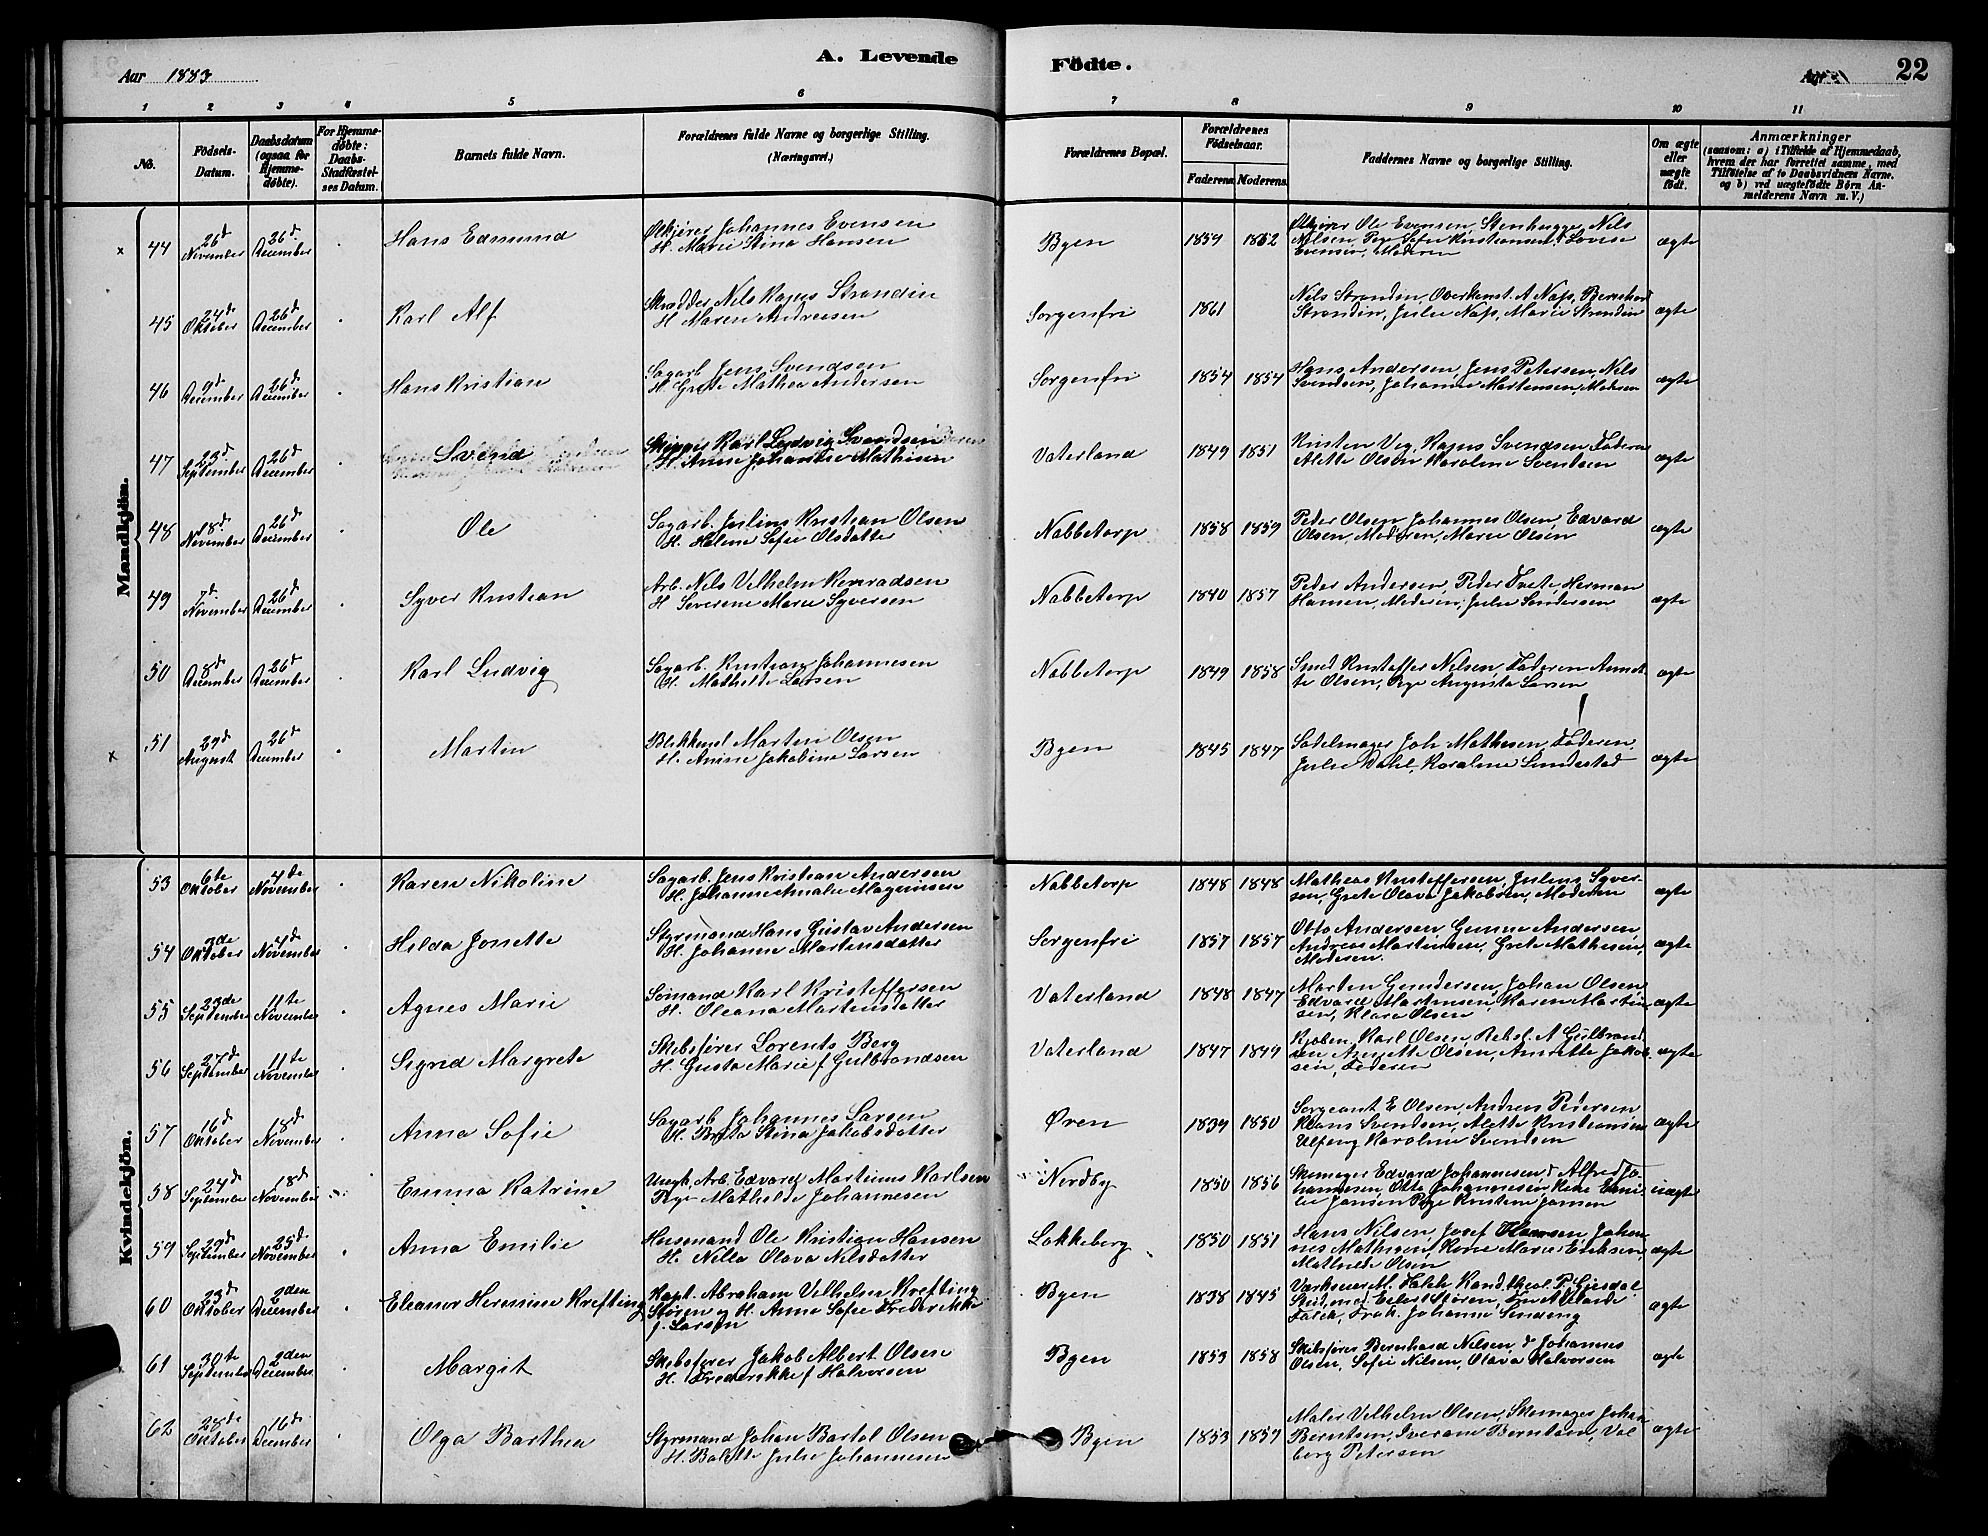 A. Levende Födte.
Aar 1883
22
1 2 3 4 5 6 7 8 9 10 11
No.
Födsels-
Datum.
Daabsdatum
(ogsaa for
Hjemme-
døbte).
For Hjemme-
døbte:
Daabs-
Stadfæstel-
ses Datum.
Barnets fulde Navn.
Forældrenes fulde Navne og borgerlige Stilling.
(Næringsvei.)
Forældrenes Bopæl.
Forældrenes
Födselsaar.
Faderens. Moderens.
Faddernes Navne og borgerlige Stilling.
Om ægte
eller
uægte
födt.
Anmærkninger
(saasom: a) i Tilfælde af Hjemmedaab,
hvem der har forrettet samme, med
Tilføielse af to Daabsvidners Navne,
og b) ved uægtefødte Börn An-
melderens Navn m. V.)
Mandkjön.
44 26d November 26d December Hans Edmund
Johannes Evensen
H. Marie Stina Hansen
Byen 1859 1862
Ole Evensen, Stenhugger Nils
Nilsen, Pige Sofie Kristiansen, Lovise
Evensen, Moderen
ægte
45 24d Oktober 26d December Karl Alf
Skrædder Nils Strandin
H. Maren Andreesen
Sorgenfri 1861
Nils Strandin, A Næs, Bernhard
Strandin, Julie Næs, Marie Strandin
ægte
46 9d December 26d December Hans Kristian
Sagarb. Jens Svendsen
H. Grete Mathea Andersen
Sorgenfri 1854 1854
Hans Andersen, Jens Petersen, Nils
Svendsen, Johanne Martensen, Moderen
ægte
47 23d September 26d December Svend
Karl Ludvig Svendsen
H. Anne Johanne Mathisen
Vaterland 1849 1851
Kristen Vig, Svendsen, Faderen
Alette Olsen, Karoline Svendsen
ægte
48 18d November 26d December Ole
Sagarb. Julius Kristian Olsen
H. Helene Sofie Olsdatter
Nabbetorp 1858 1859
Peder Olsen, Johannes Olsen, Edvard
Olsen, Moderen, Marie Olsen
ægte
49 7d November 26d December Syver Kristian
Arb. Nils Vilhelm Konradsen
H. Severene Marie Syversen
Nabbetorp 1840 1857
Peder Andersen, Peder Tvete, Herman
Hansen, Moderen, Julie Sandersen
ægte
50 8d December 26d December Karl Ludvig
Sagarb. Kristian Johannesen
H. Mathilde Larsen
Nabbetorp 1849 1858
Smed Kristoffer Nilsen, Faderen, Annet-
te Olsen, Pige Augusta Larsen
ægte
51 29d August 26d December Martin
Blikkensl. Martin Olsen
H. Anine Jakobine Larsen
Byen 1845 1847
Sadelmager Joh. Mathesen, Faderen,
Julie Dahl, Karoline Sundestad
ægte
Kvindekjön.
53 6te Oktober 4de November Karen Nikoline
Sagarb. Jens Kristian Andersen
H. Johanne Amalie Magnussen
Nabbetorp 1848 1848
Matheas Kristoffersen, Julius Syver-
sen, Grete Olava Jakobsen, Moderen
ægte
54 3de Oktober 4d November Hilda Jonette
Styrmand Hans Gustav Andersen
H. Johanne Martensdatter
Sorgenfri 1857 1857
Otto Andersen, Gunne Andersen,
Andreas Martinsen, Grete Mathesen,
Moderen.
ægte
55 23de September 11te November Agnes Marie
Sømand Karl Kristoffersen
H. Oleana Martinsdatter
Vaterland 1848 1847
Marten Gundersen, Johan Olsen,
Edvard Martinsen, Karen Martin-
sen, Klara Olsen
ægte
56 27de September 11te November Sigrid Margrete
Skibsfører Lorents Berg
H. Gusta Marie f Gulbrandsen
Vaterland 1847 1849
Kjøbm. Karl Olsen, Rebsl. A Gulbrand-
sen, Annette Olsen, Annette Jakob-
sen, Faderen
ægte
57 16d Oktober 18d November Anna Sofie
Sagarb. Johannes Larsen
H. Berta Stina Jakobsdatter
Øren 1839 1850
Sergeant E Olsen, Andreas Pedersen,
Klaus Svendsen, Alette Kristiansen
Ulfeng, Karoline Svendsen
ægte
58 24d September 18d November Emma Katrine
Ungk. Arb. Edvard Martinus Karlsen
Pige Mathilde Johannesen
Nordby 1850 1856
Skomager Edvard Johannesen, d Alfred Jo-
hannesen, Otto Johannesen, Kone Emi-
lie Jansen, Pige Kristine Jansen
uægte
59 29d September 25d November Anna Emilie
Husmand Ole Kristian Hansen
H. Nilla Olava Nilsdatter
Lokkeberg 1850 1851
Hans Nilsen, Josef Hansen, Johan-
nes Mathisen, Kone Marie Eriksen,
Mathilde Olsen
ægte
60 23d Oktober 2den December Eleanor Hermine Krefting
Kapt. Abraham Vilhelm Krefting
Støren og H. Anna Sofie Frederikke
f. Larsen
Byen 1838 1845
M. Falck, Kand. theol. P. Gjesdal,
Stud. med. Eilert Støren, Fru
Falck, Frøk. Johanne Sinding
ægte
61 30te September 2den December Margit
Skibsfører Jakob Albert Olsen
H. Frederikke f Halvorsen
Byen 1853 1858
Skibsfører Bernhard Nilsen, d Johannes
Olsen, Sofie Nilsen, Olava Halvorsen
ægte
62 28de Oktober 16d December Olga Barthea
Styrmand Johan Bartol Olsen
H. Julie Johannesen
Byen 1853 1859
Maler Vilhelm Olsen, Skomager Johan
Berntsen, Iverane Berntsen, Val-
borg Petersen
ægte